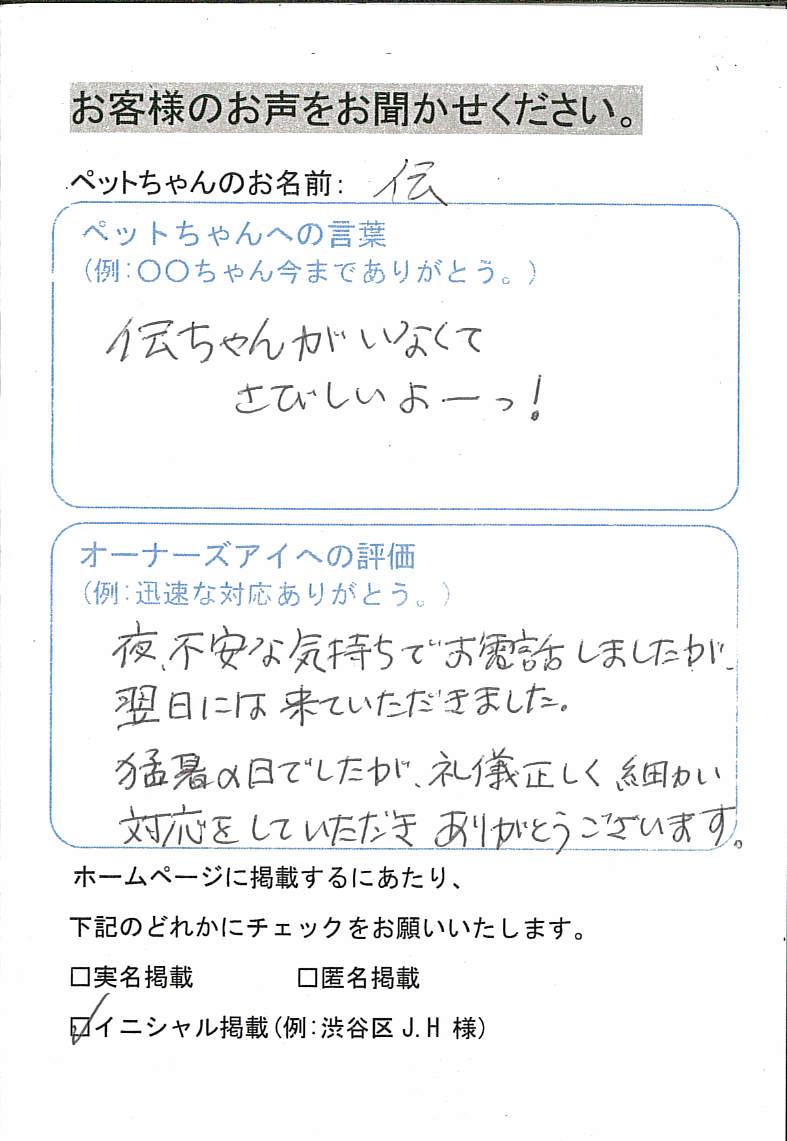 お客様のお声をお聞かせください。
ペットちゃんのお名前: 伝
ペットちゃんへの言葉
(例:〇〇ちゃん今までありがとう。)
伝ちゃんがいなくて
さびしいよーっ!
オーナーズアイへの評価
(例:迅速な対応ありがとう。)
夜、不安な気持ちでお電話しましたが、
翌日には来ていただきました。
猛暑の日でしたが、礼儀正しく細かい
対応をしていただき ありがとうございます。
ホームページに掲載するにあたり、
下記のどれかにチェックをお願いいたします。
□実名掲載 □匿名掲載
☑イニシャル掲載(例:渋谷区 J.H 様)